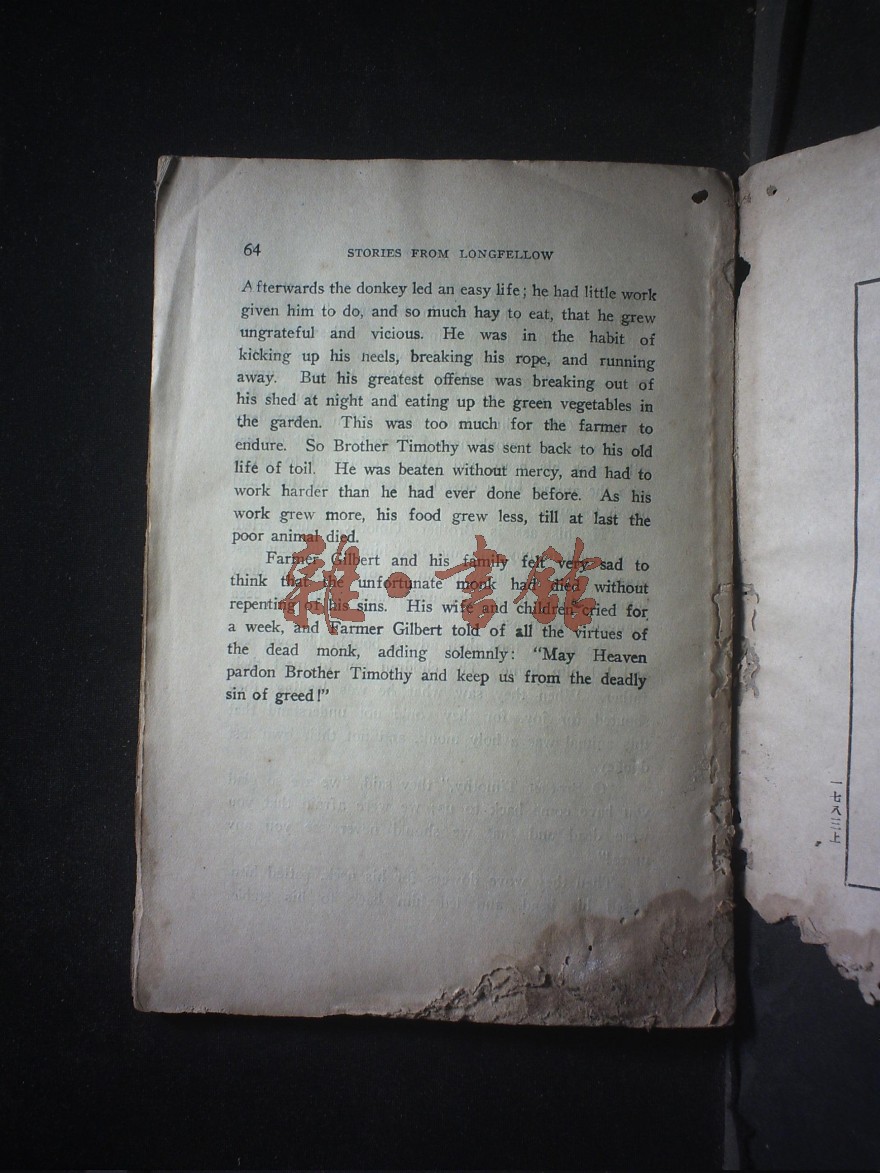 64 STORIES FROM LONGFELLOW
Afterwards the donkey led an easy life; he had little work
given him to do, and so much hay to eat, that he grew
ungrateful and vicious. He was in the habit of
kicking up his heels, breaking his rope, and running
away. But his greatest offense was breaking out of
his shed at night and eating up the green vegetables in
the garden. This was too much for the farmer to
endure. So Brother Timothy was sent back to his old
life of toil. He was beaten without mercy, and had to
work harder than he had ever done before. As his
work grew more, his food grew less, till at last the
poor animal died.
Farmer Gilbert and his family felt very sad to
think that the unfortunate monk had died without
repenting of his sins. His wife and children cried for
a week, and Farmer Gilbert told of all the virtues of
the dead monk, adding solemnly: "May Heaven
pardon Brother Timothy and keep us from the deadly
sin of greed!"
雜·書館
一七八三上